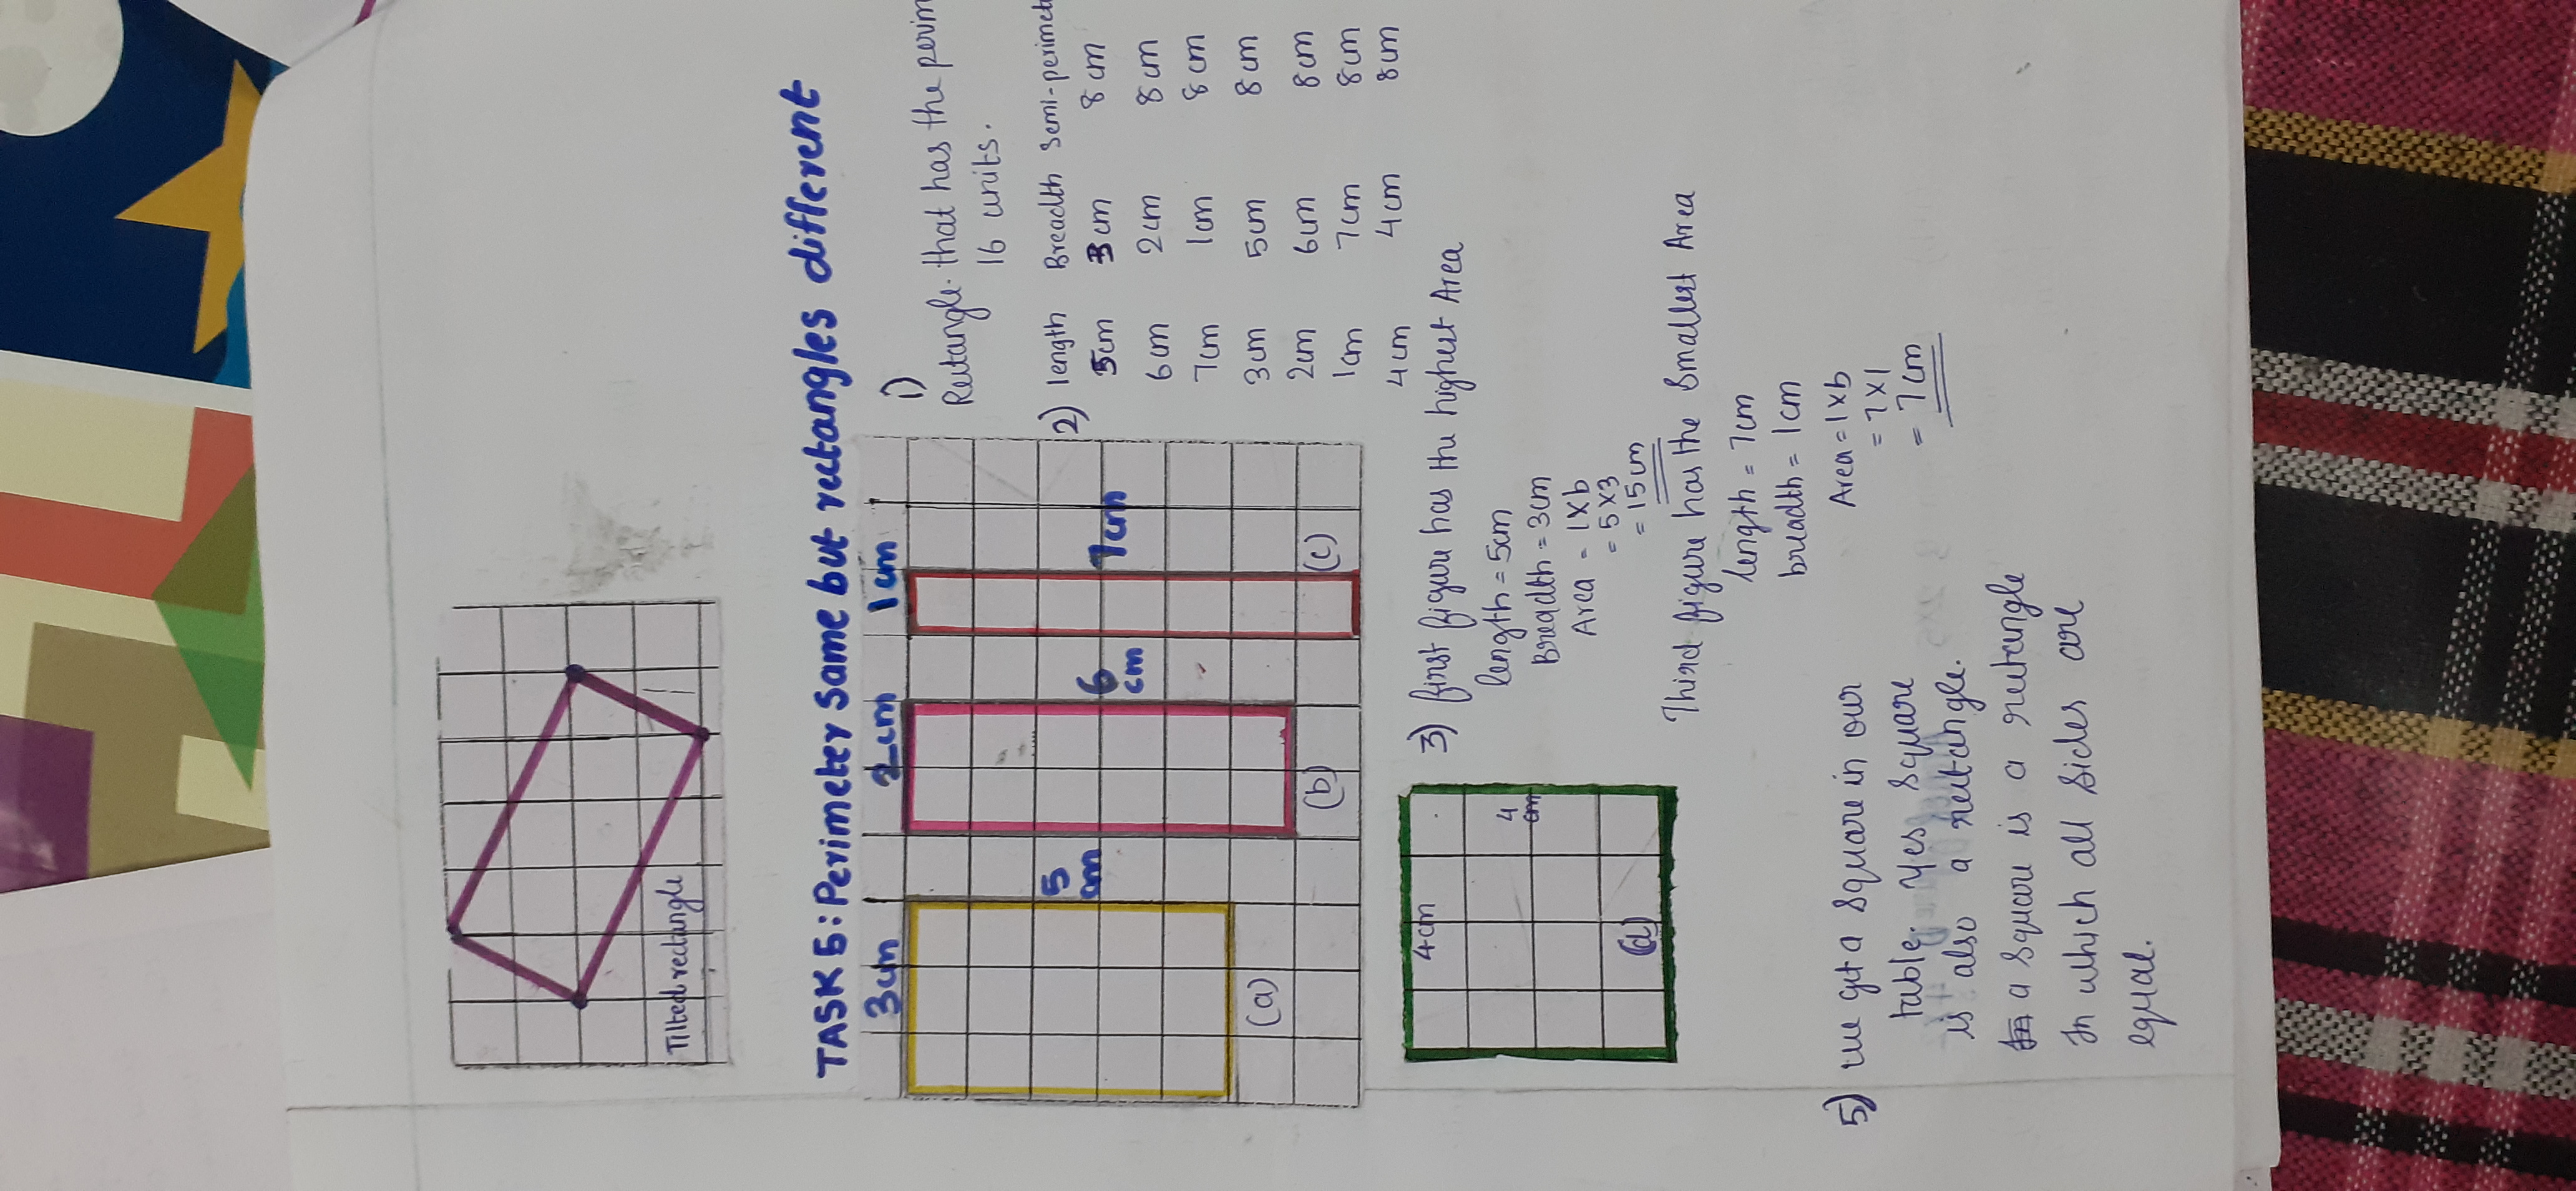 Tilted rectangle
TASK 5: Perimeter same but rectangles different
3cm
2cm
1cm
5
cm
6
cm
7cm
(a)
(b)
(c)
1)
Rectangle. that has the perim
16 units.
2) length Breadth Semi-perimet
5cm 3cm 8cm
6cm 2cm 8cm
7cm 1cm 8cm
3cm 5cm 8cm
2cm 6cm 8cm
1cm 7cm 8cm
4cm 4cm 8cm
4cm
4
cm
(d)
3) first figure has the highest Area
length = 5cm
Breadth = 3cm
Area = l×b
= 5×3
= 15cm
Third figure has the Smallest Area
length = 7cm
breadth = 1cm
Area = l×b
= 7×1
= 7cm
5) we get a square in our
table. Yes square
is also a rectangle.
a square is a rectangle
In which all sides are
equal.